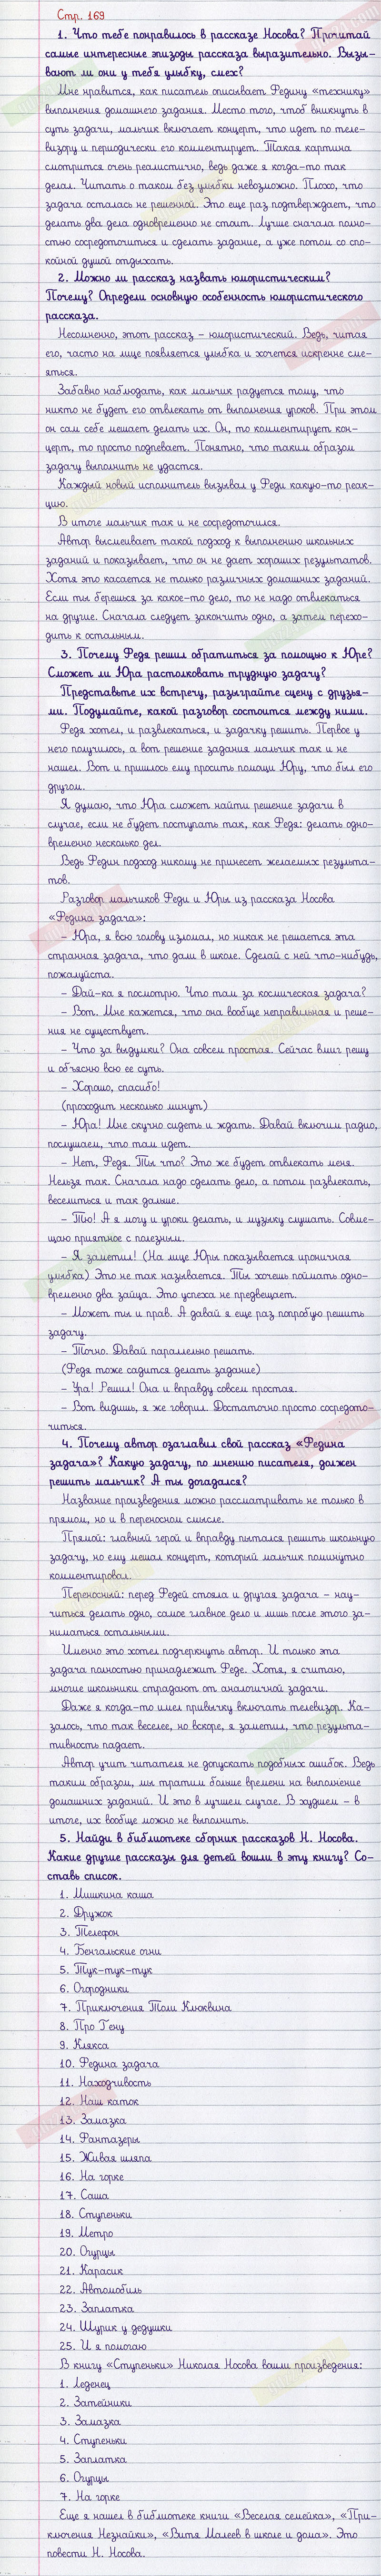 Стр. 169
1. Что тебе понравилось в рассказе Носова? Прочитай
самые интересные эпизоды рассказа выразительно. Вызы-
вают ли они у тебя улыбку, смех?
Мне нравится, как писатель описывает Федину «технику»
выполнения домашнего задания. Место того, чтоб вникнуть в
суть задачи, мальчик включает концерт, что идет по теле-
визору и периодически его комментирует. Такая картина
смотрится очень реалистично, ведь даже я когда-то так
делал. Читать о таком без улыбки невозможно. Плохо, что
задача осталась не решенной. Это еще раз подтверждает, что
делать два дела одновременно не стоит. Лучше сначала полно-
стью сосредоточиться и сделать задание, а уже потом со спо-
койной душой отдыхать.
2. Можно ли рассказ назвать юмористическим?
Почему? Определи основную особенность юмористического
рассказа.
Несомненно, этот рассказ – юмористический. Ведь, читая
его, часто на лице появляется улыбка и хочется искренне сме-
яться.
Забавно наблюдать, как мальчик радуется тому, что
никто не будет его отвлекать от выполнения уроков. При этом
он сам себе мешает делать их. Он, то комментирует кон-
церт, то просто подпевает. Понятно, что таким образом
задачу выполнить не удастся.
Каждый новый исполнитель вызывал у Феди какую-то реак-
цию.
В итоге мальчик так и не сосредоточился.
Автор высмеивает такой подход к выполнению школьных
заданий и показывает, что он не дает хороших результатов.
Хотя это касается не только различных домашних заданий.
Если ты берешься за какое-то дело, то не надо отвлекаться
на другие. Сначала следует закончить одно, а затем перехо-
дить к остальным.
3. Почему Федя решил обратиться за помощью к Юре?
Сможет ли Юра растолковать трудную задачу?
Представьте их встречу, разыграйте сцену с друзья-
ми. Подумайте, какой разговор состоится между ними.
Федя хотел, и развлекаться, и задачку решить. Первое у
него получилось, а вот решение задания мальчик так и не
нашел. Вот и пришлось ему просить помощи Юру, что был его
другом.
Я думаю, что Юра сможет найти решение задачи в
случае, если не будет поступать так, как Федя: делать одно-
временно несколько дел.
Ведь Федин подход никому не принесет желаемых результа-
тов.
Разговор мальчиков Феди и Юры из рассказа Носова
«Федина задача»:
– Юра, я всю голову изломал, но никак не решается эта
странная задача, что дали в школе. Сделай с ней что-нибудь,
пожалуйста.
– Дай-ка я посмотрю. Что там за космическая задача?
– Вот. Мне кажется, что она вообще неправильная и реше-
ния не существует.
– Что за выдумки? Она совсем простая. Сейчас вмиг решу
и объясню всю ее суть.
– Хорошо, спасибо!
(проходит несколько минут)
– Юра! Мне скучно сидеть и ждать. Давай включим радио,
послушаем, что там идет.
– Нет, Федя. Ты что? Это же будет отвлекать меня.
Нельзя так. Сначала надо сделать дело, а потом развлекать,
веселиться и так дальше.
– Тю! А я могу и уроки делать, и музыку слушать. Совме-
щаю приятное с полезным.
– Я заметил! (На лице Юры показывается ироничная
улыбка) Это не так называется. Ты хочешь поймать одно-
временно два зайца. Это успеха не предвещает.
– Может ты и прав. А давай я еще раз попробую решить
задачу.
– Точно. Давай паралельно решать.
(Федя тоже садится делать задание)
– Ура! Решил! Она и вправду совсем простая.
– Вот видишь, я же говорил. Достаточно просто сосредото-
читься.
4. Почему автор озаглавил свой рассказ «Федина
задача»? Какую задачу, по мнению писателя, должен
решить мальчик? А ты догадался?
Название произведения можно рассматривать не только в
прямом, но и в переносном смысле.
Прямой: главный герой и вправду пытался решить школьную
задачу, но ему мешал концерт, который мальчик поминутно
комментировал.
Переносный: перед Федей стояла и другая задача – нау-
читься делать одно, самое главное дело и лишь после этого за-
ниматься остальными.
Именно это хотел подчеркнуть автор. И только эта
задача полностью принадлежит Феде. Хотя, я считаю,
многие школьники страдают от аналогичной задачи.
Даже я когда-то имел привычку включать телевизор. Ка-
залось, что так веселее, но вскоре, я заметил, что результа-
тивность падает.
Автор учит читателя не допускать подобных ошибок. Ведь
таким образом, мы тратим больше времени на выполнение
домашних заданий. И это в лучшем случае. В худшем – в
итоге, их вообще можно не выполнить.
5. Найди в библиотеке сборник рассказов Н. Носова.
Какие другие рассказы для детей вошли в эту книгу? Со-
ставь список.
1. Мишкина каша
2. Дружок
3. Телефон
4. Бенгальские огни
5. Тук-тук-тук
6. Огородники
7. Приключения Толи Клюквина
8. Про Гену
9. Клякса
10. Федина задача
11. Находчивость
12. Наш каток
13. Замазка
14. Фантазеры
15. Живая шляпа
16. На горке
17. Саша
18. Ступеньки
19. Метро
20. Огурцы
21. Карасик
22. Автомобиль
23. Заплатка
24. Шурик у дедушки
25. И я помогаю
В книгу «Ступеньки» Николая Носова вошли произведения:
1. Леденец
2. Затейники
3. Замазка
4. Ступеньки
5. Заплатка
6. Огурцы
7. На горке
Еще я нашел в библиотеке книги «Веселая семейка», «При-
ключения Незнайки», «Витя Малеев в школе и дома». Это
повести Н. Носова.